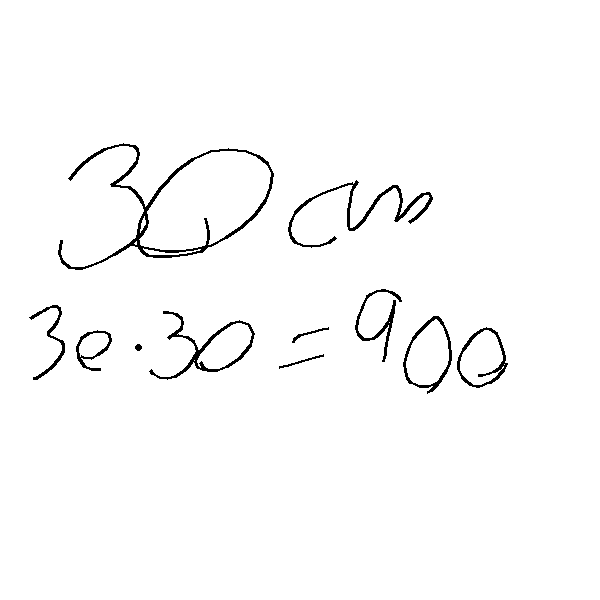 30 cm
30 · 30 = 900